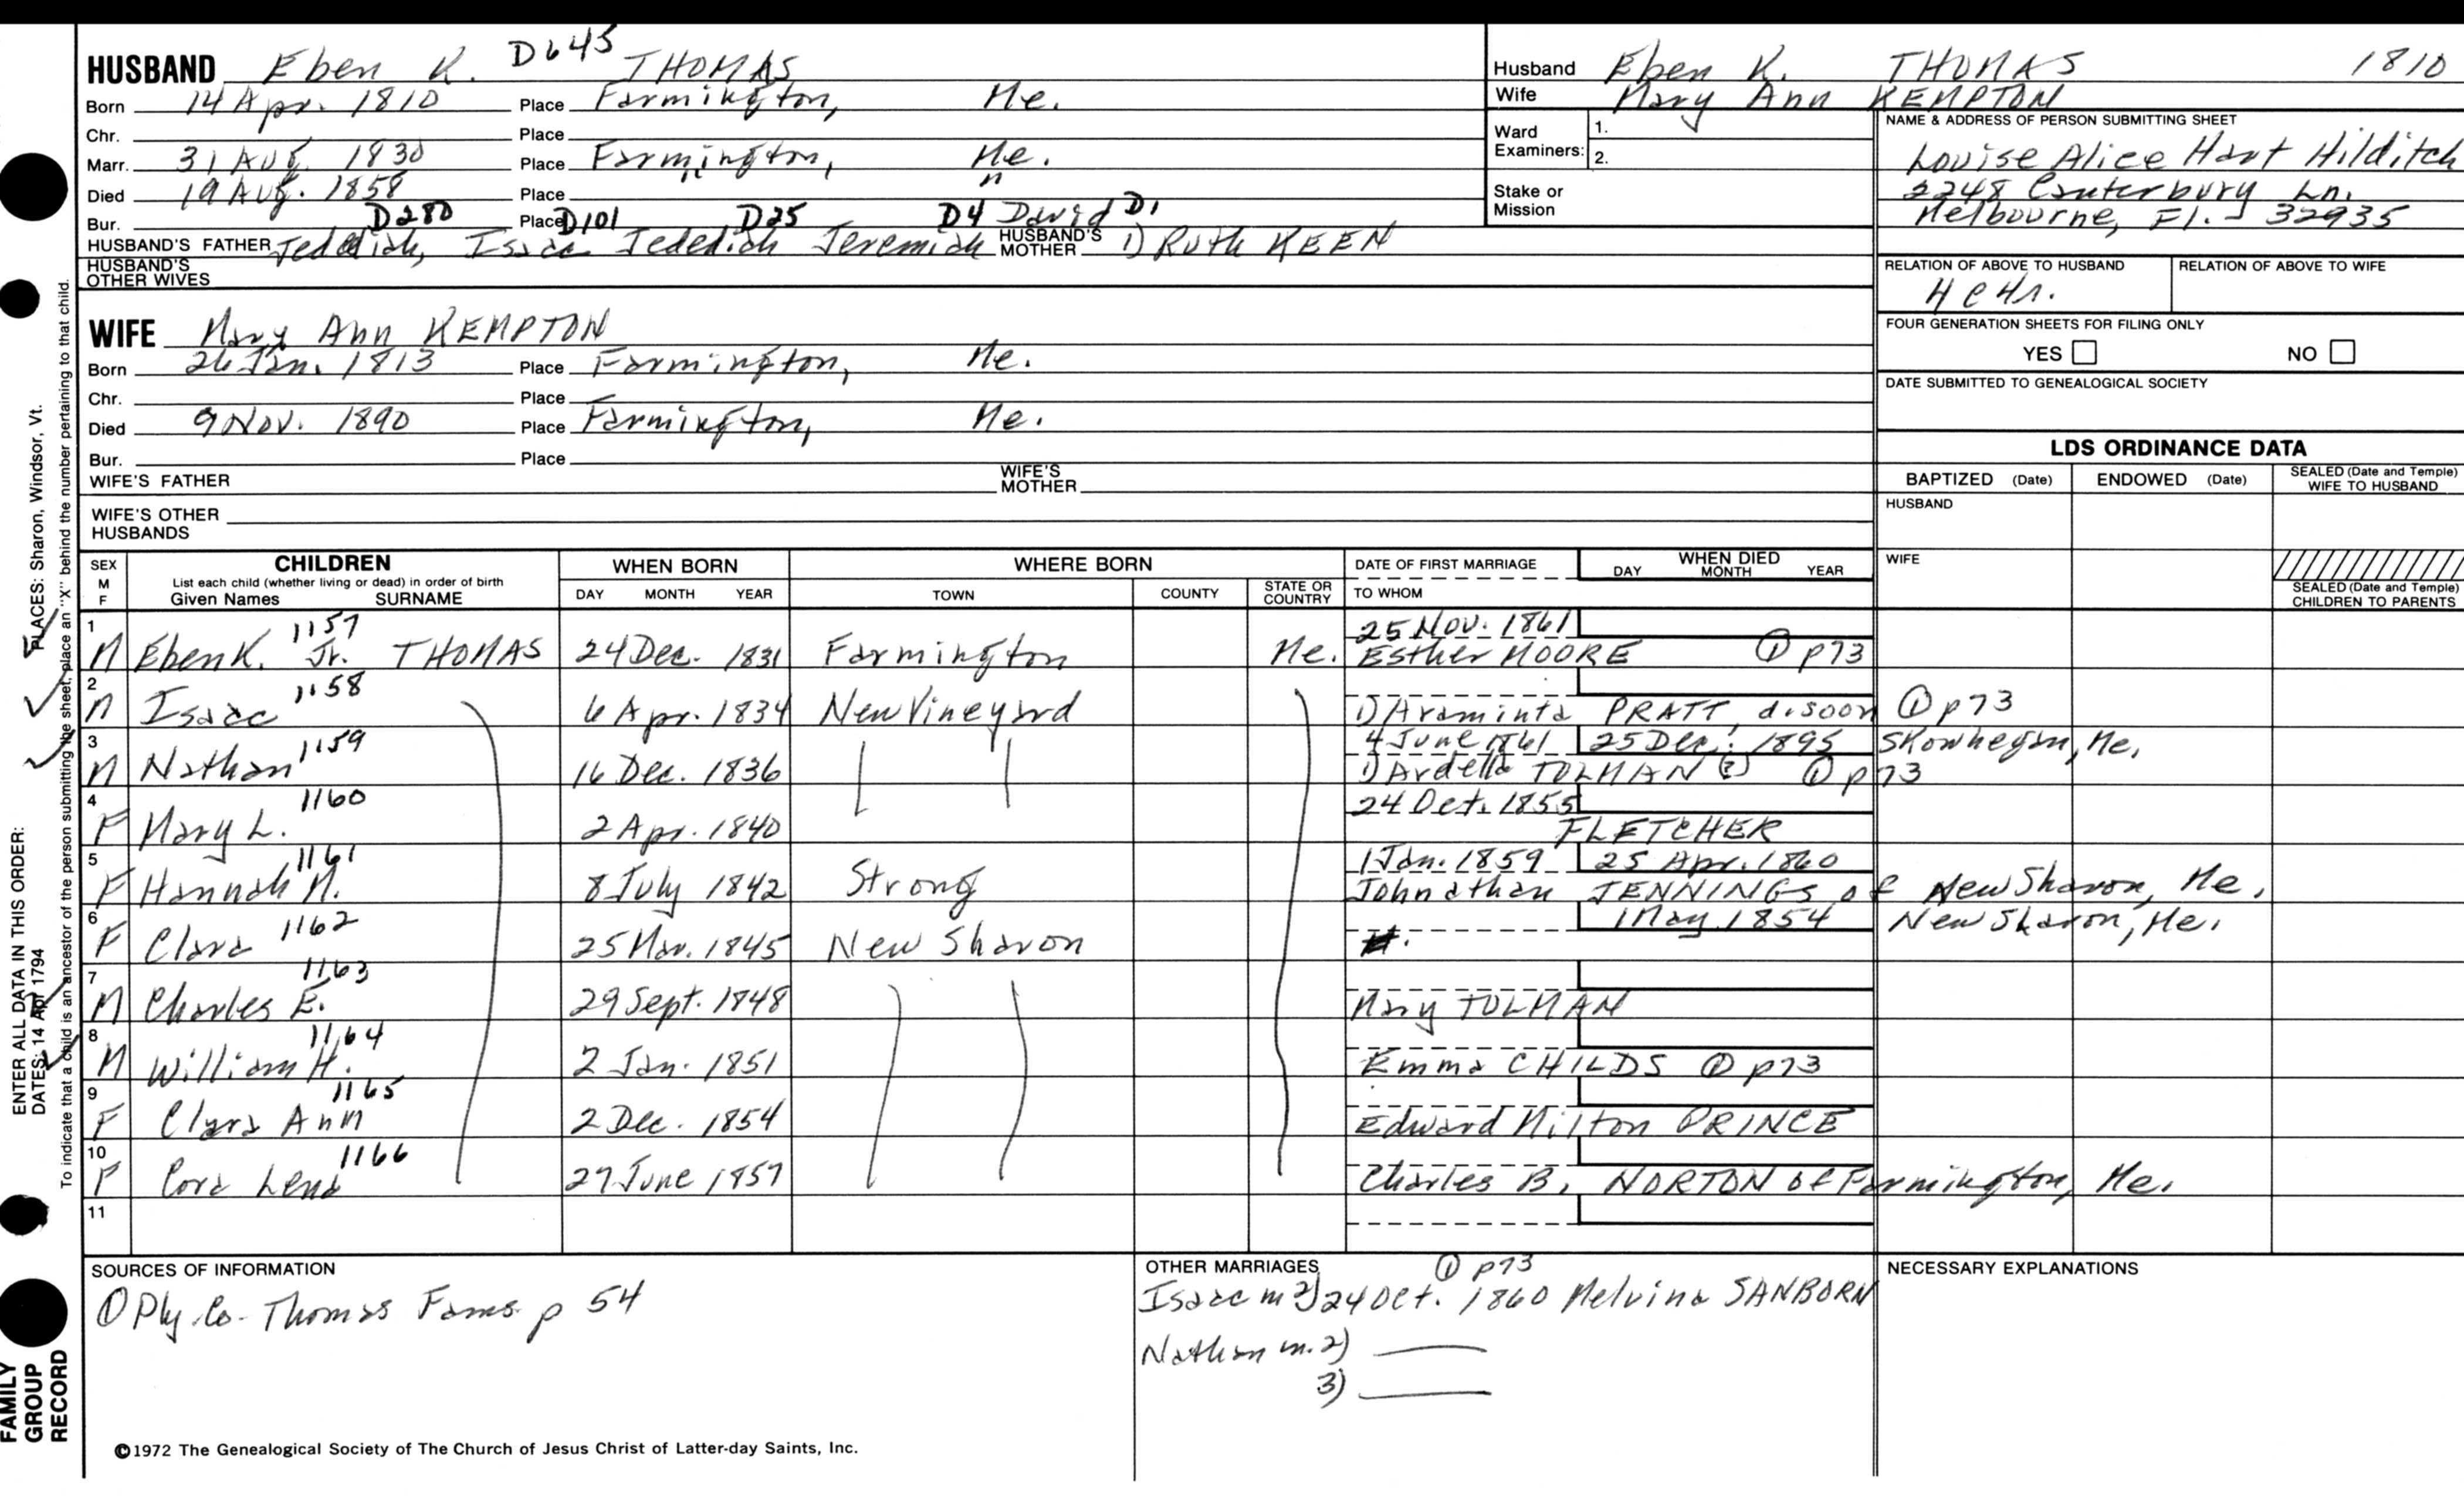 HUSBAND Eben K. D645 THOMAS
Born 14 Apr. 1810 Place Farmington, Me.
Chr. Place
Marr. 31 Aug. 1830 Place Farmington, Me.
Died 19 Aug. 1858 Place " "
Bur. D280 Place D101 D25 D4 David D1
HUSBAND'S FATHER Jedediah, Isaac Jedediah Jeremiah HUSBAND'S MOTHER 1) Ruth KEEN
HUSBAND'S OTHER WIVES
WIFE Mary Ann KEMPTON
Born 26 Jan. 1813 Place Farmington, Me.
Chr. Place
Died 9 Nov. 1890 Place Farmington, Me.
Bur. Place
WIFE'S FATHER WIFE'S MOTHER
WIFE'S OTHER HUSBANDS
Husband Eben K. THOMAS 1810
Wife Mary Ann KEMPTON
Ward Examiners: 1. 2.
Stake or Mission
NAME & ADDRESS OF PERSON SUBMITTING SHEET
Louise Alice Hart Hilditch
2248 Canterbury Ln.
Melbourne, Fl. 32935
RELATION OF ABOVE TO HUSBAND RELATION OF ABOVE TO WIFE
FOUR GENERATION SHEETS FOR FILING ONLY
YES NO
DATE SUBMITTED TO GENEALOGICAL SOCIETY
LDS ORDINANCE DATA
BAPTIZED (Date) ENDOWED (Date) SEALED (Date and Temple) WIFE TO HUSBAND
HUSBAND
WIFE
SEALED (Date and Temple) CHILDREN TO PARENTS
SEX M F CHILDREN WHEN BORN WHERE BORN DATE OF FIRST MARRIAGE WHEN DIED
List each child (whether living or dead) in order of birth
Given Names SURNAME DAY MONTH YEAR TOWN COUNTY STATE OR COUNTRY TO WHOM DAY MONTH YEAR
1 1157 25 Nov. 1861
M Eben K. Jr. THOMAS 24 Dec. 1831 Farmington Me. Esther MOORE ① p73
2 1158
M Isaac 6 Apr. 1834 New Vineyard 1) Araminta PRATT, d. soon ① p73
3 1159 4 June 1861 25 Dec. 1895 Skowhegan, Me.
M Nathan 16 Dec. 1836 1) Ardella TOLMAN (?) ① p73
4 1160 24 Oct. 1855
F Mary L. 2 Apr. 1840 FLETCHER
5 1161 1 Jan. 1859 25 Apr. 1860
F Hannah M. 8 July 1842 Strong Johnathan JENNINGS of New Sharon, Me.
6 1162 1 May 1854 New Sharon, Me.
F Clara 25 Mar. 1845 New Sharon
7 1163
M Charles E. 29 Sept. 1848 Mary TOLMAN
8 1164
M William H. 2 Jan. 1851 Emma CHILDS ① p73
9 1165
F Clara Ann 2 Dec. 1854 Edward Milton PRINCE
10 1166
F Cora Lena 27 June 1857 Charles B. NORTON of Farmington, Me.
11
SOURCES OF INFORMATION
① Ply. Co. Thomas Fams. p 54
OTHER MARRIAGES ① p73
Isaac m 2) 24 Oct. 1860 Melvina SANBORN
Nathan m. 2)
3)
NECESSARY EXPLANATIONS
©1972 The Genealogical Society of The Church of Jesus Christ of Latter-day Saints, Inc.
ENTER ALL DATA IN THIS ORDER:
DATES: 14 Apr 1794 PLACES: Sharon, Windsor, Vt.
To indicate that a child is an ancestor of the person submitting the sheet, place an "X" behind the number pertaining to that child.
FAMILY
GROUP
RECORD